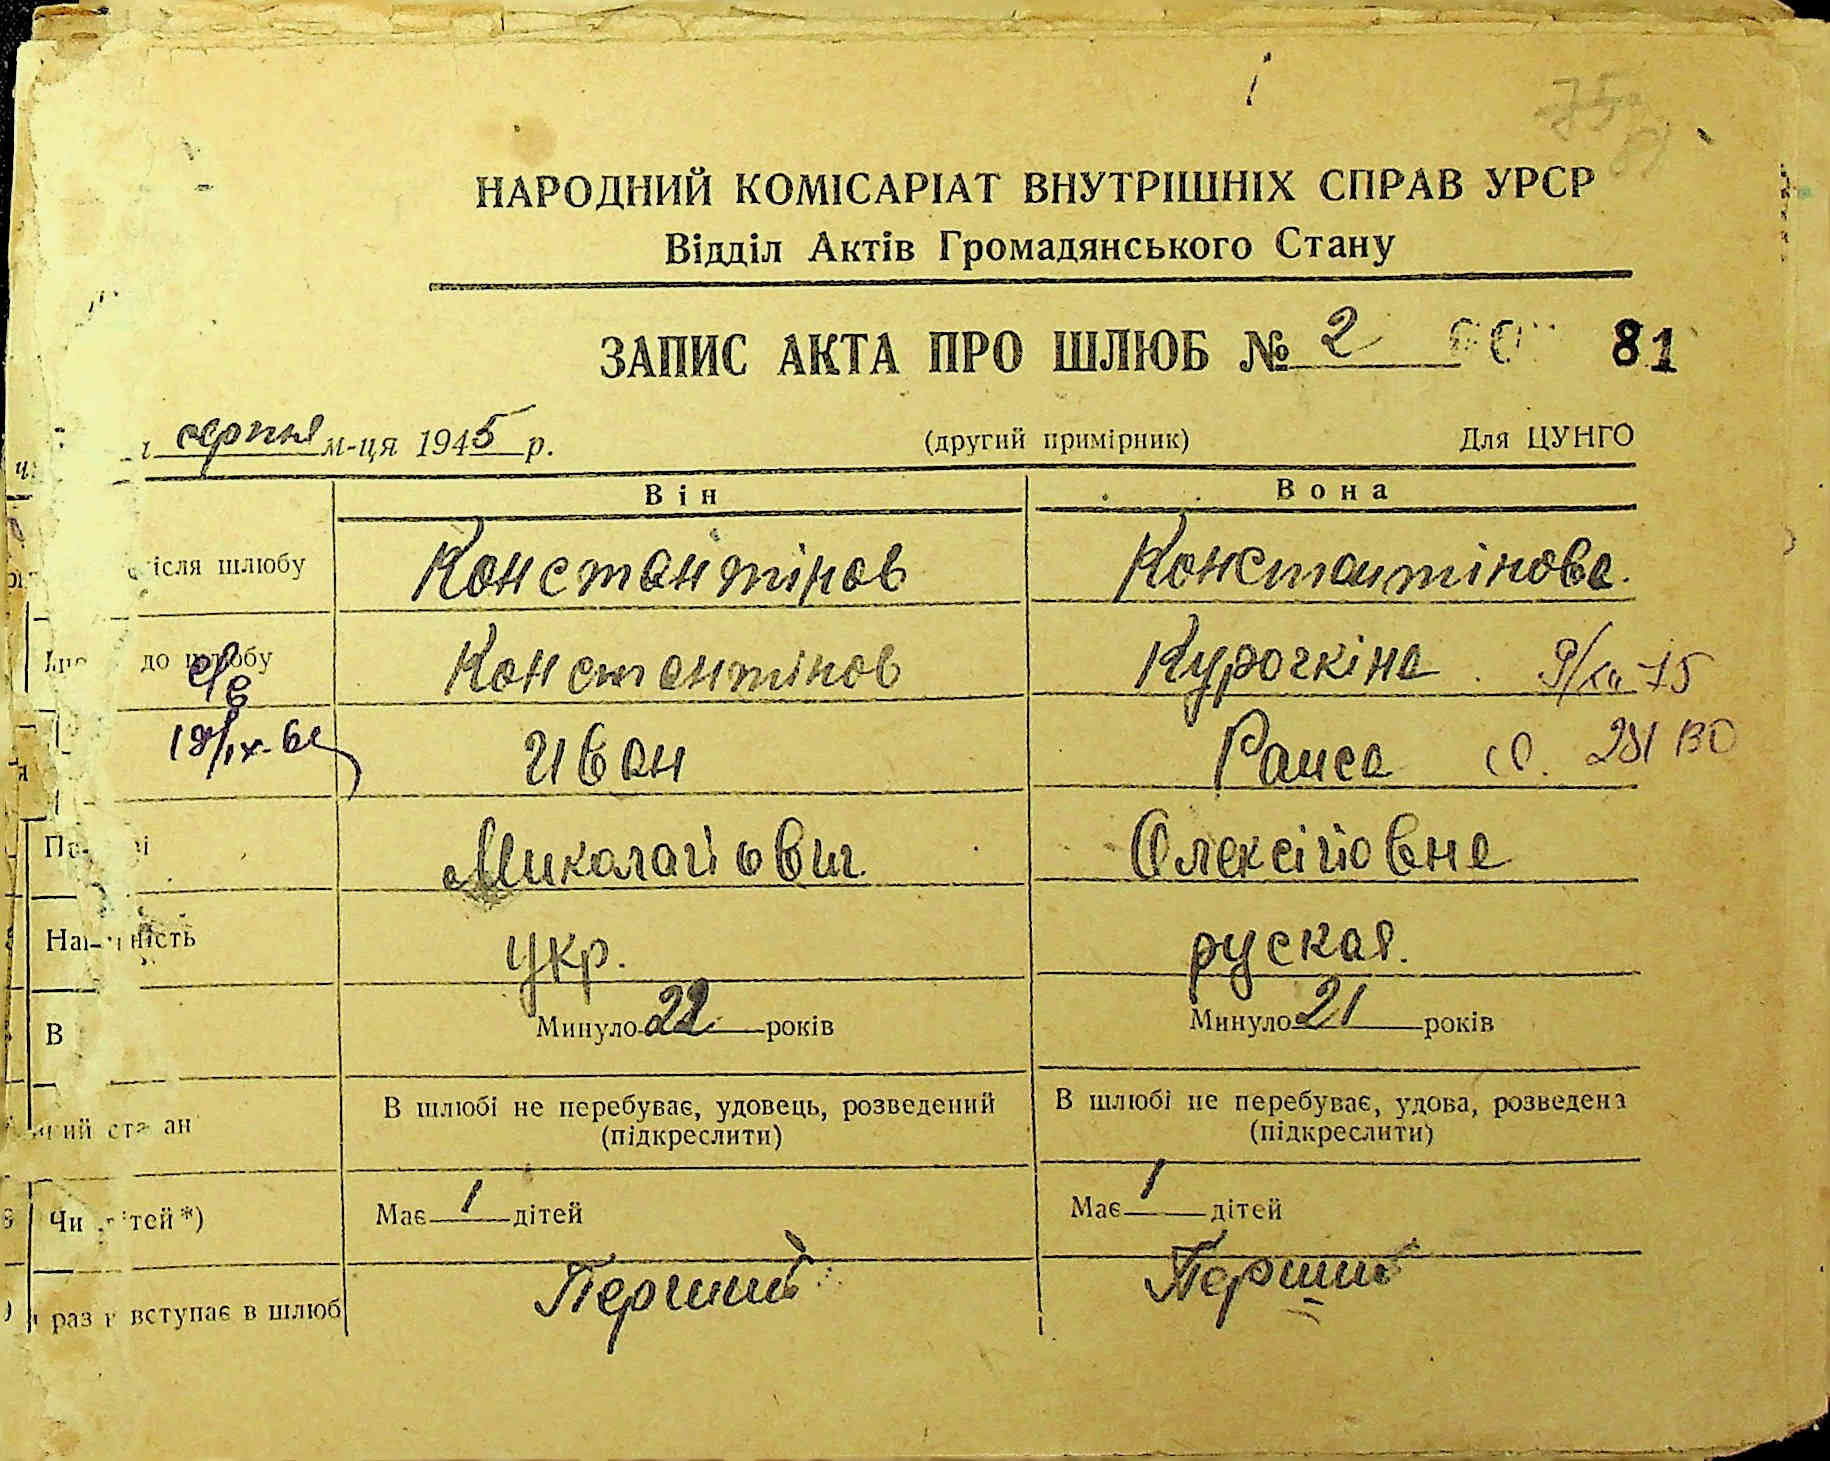 НАРОДНИЙ КОМІСАРІАТ ВНУТРІШНІХ СПРАВ УРСР
Відділ Актів Громадянського Стану
ЗАПИС АКТА ПРО ШЛЮБ № 2 81
серпня м-ця 1945 р. (другий примірник) Для ЦУНГО
Він Вона
після шлюбу Константінов Константінова.
до шлюбу Константінов Курочкіна
Иван Раиса 281 ВО
Миколайович Олексіївна
укр. руская.
В Минуло 22 років Минуло 21 років
В шлюбі не перебуває, удовець, розведений В шлюбі не перебуває, удова, розведена
стан (підкреслити) (підкреслити)
Чи дітей*) Має 1 дітей Має 1 дітей
раз вступає в шлюб Перший Перший